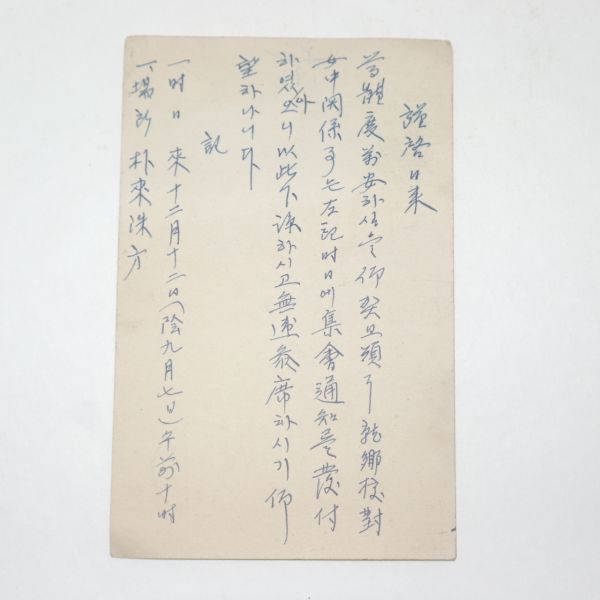 謹啓日來
尊體度萬安하심을仰癸旦頭 就鄕校對
女中関係 는左記時日에集會通知를發付
하였으니以此下諒하시고無違參席하시기仰
望하나니다
記
一 時日 來十二月十二日(陰九月七日)午前十時
一、場所 朴來洙方